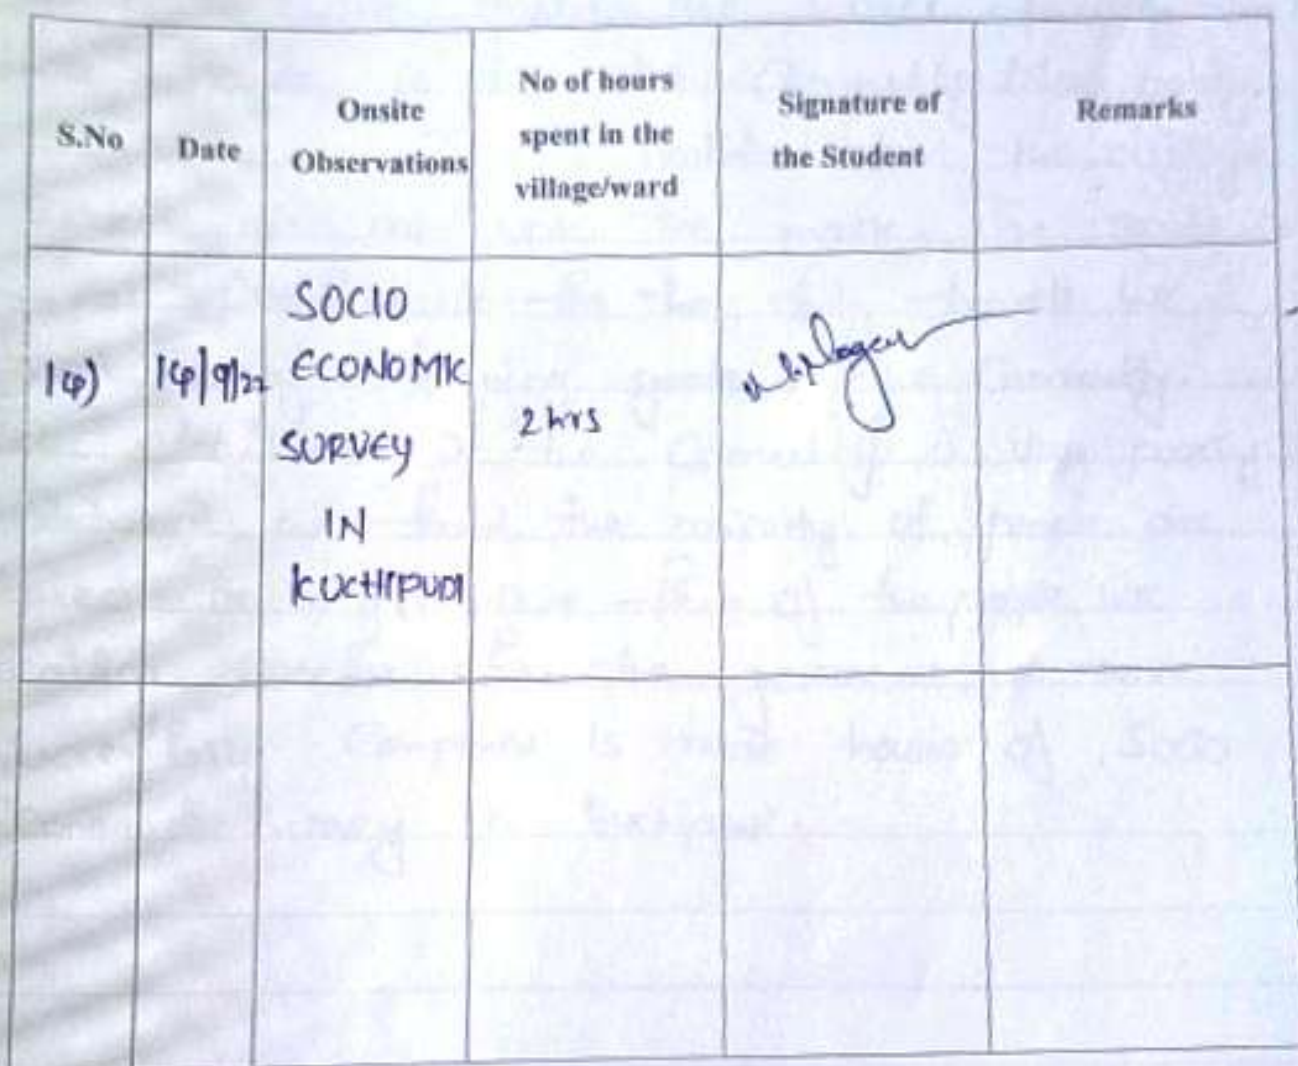 S.No Date Onsite Observations No of hours spent in the village/ward Signature of the Student Remarks
SOCIO
14) 14/9/22 ECONOMIC
2 hrs
SURVEY
IN
KUCHIPUDI